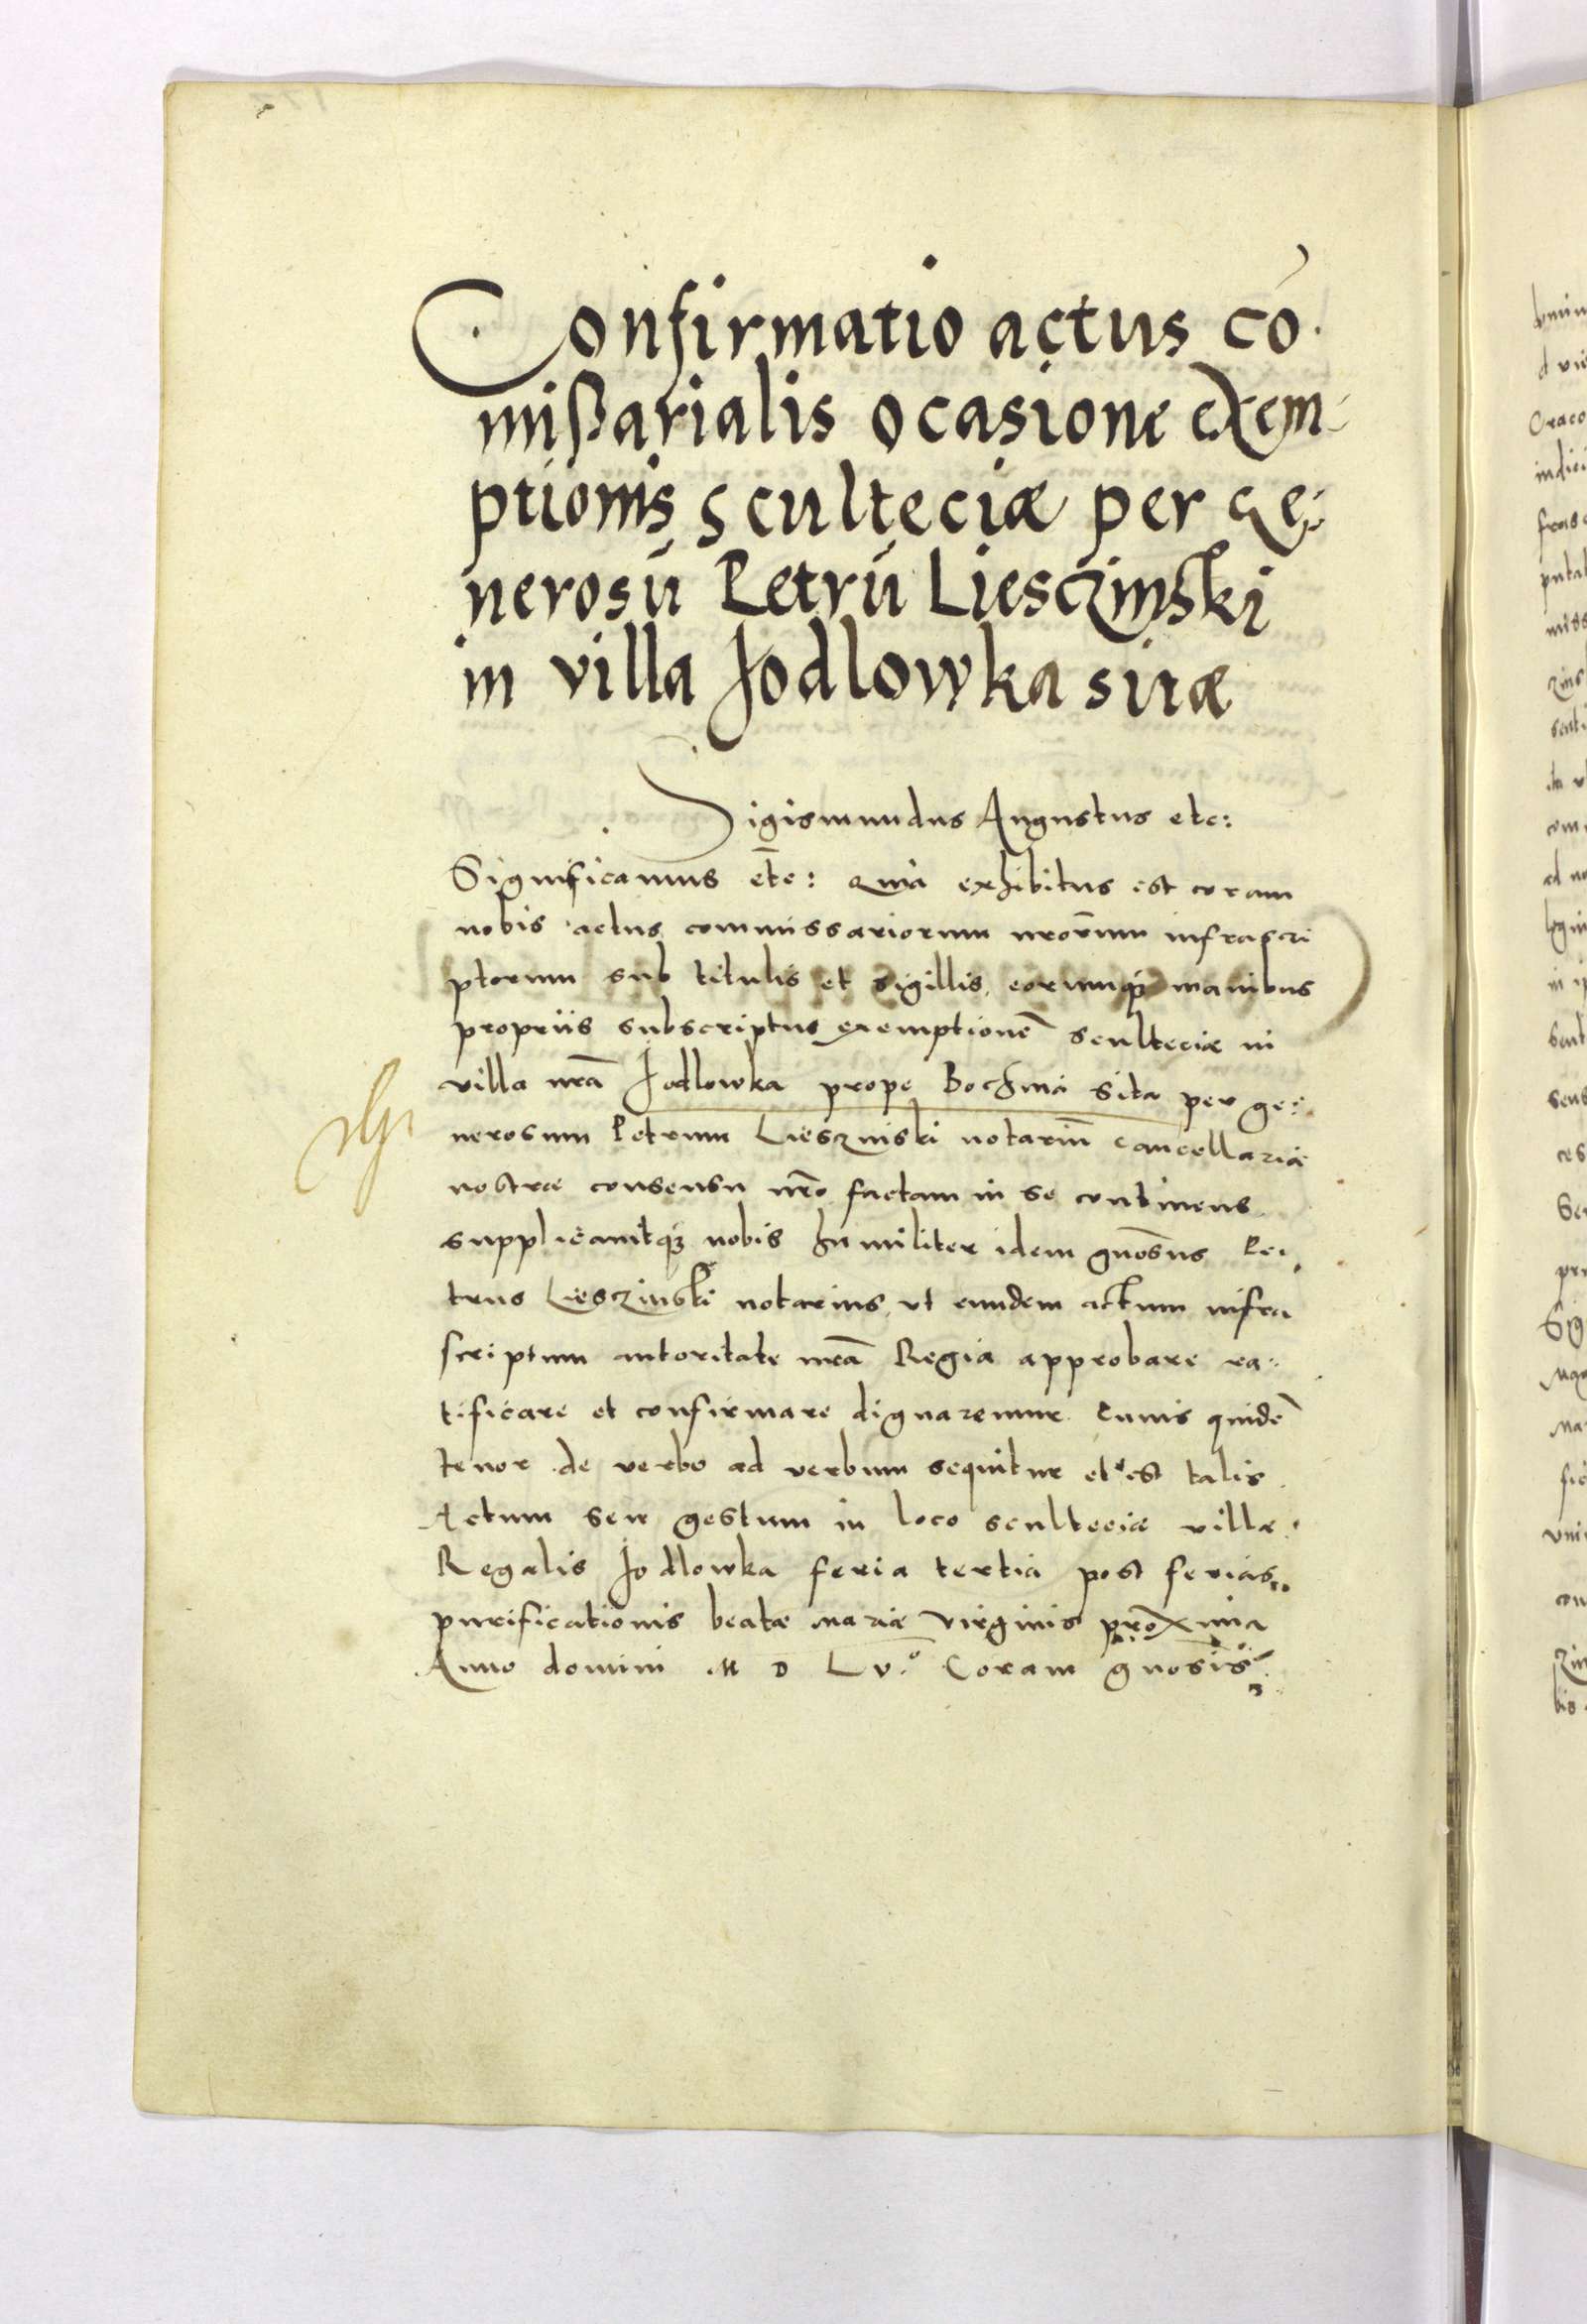 Confirmatio actus cō.
mißarialis ocasione exem-
ptionis sculteciæ per ge:
nerosū Petrū Liesczinski
in villa Jodlowka sitæ
Sigismundus Augustus etc:
Significamus etc: Quia exhibitus est coram
nobis actus commissariorum nrōrum infrascri
ptorum sub titulis et sigillis, eorumqȝ manibus
propriis subscriptus exemptionē sculteciæ in
villa nrā Jodlowka prope Bochnia sita per ge:
nerosum Petrum Liesczinski notariū cancellariæ
nostræ consensu nrō factam in se continens
supplicauitqȝ nobis humiliter idem gnōsus Pe:
trus Liesczinski notarius, vt eundem actum infra
scriptum autoritate nrā Regia approbare ra:
tificare et confirmare dignaremur. Cuius quidē
tenor de verbo ad verbum sequitur et est talis.
Actum seu gestum in loco sculteciæ villæ
Regalis Jodlowka feria tertia post ferias
purificationis beatæ Mariæ Virginis proxima
Anno domini M D Lv.º Coram gnōsis